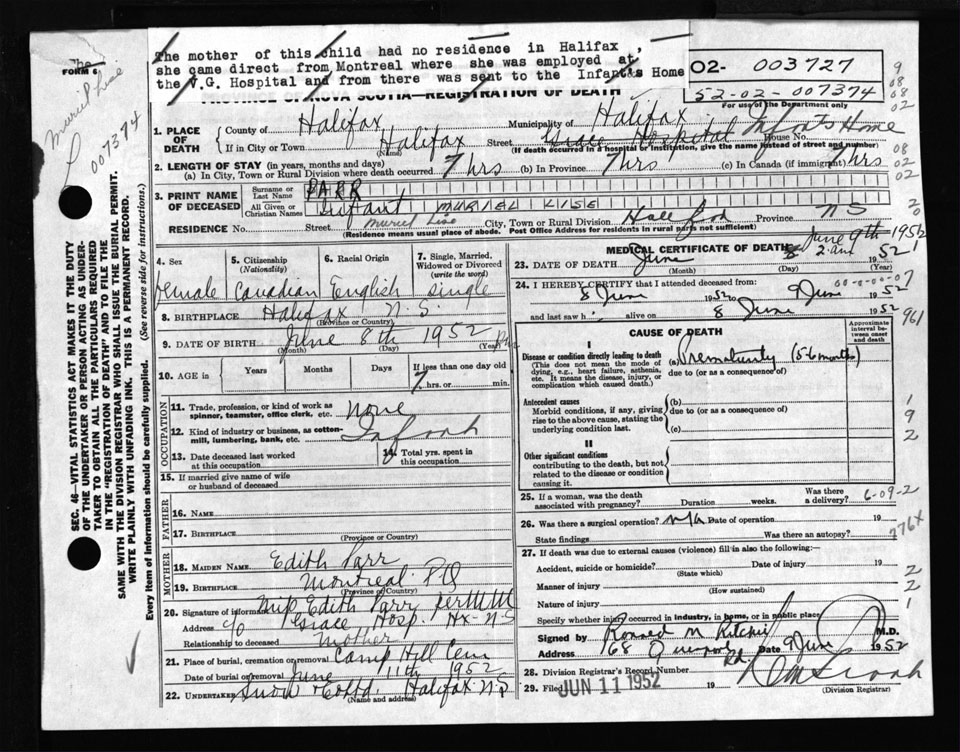 The mother of this child had no residence in Halifax,
she came direct from Montreal where she was employed at
the V.G. Hospital and from there was sent to the Infants Home
FORM 6
Muriel Lise
007374
02- 003727
52-02-007374
For use of the Department only
PROVINCE OF NOVA SCOTIA—REGISTRATION OF DEATH
1. PLACE OF DEATH
County of Halifax Municipality of Halifax
If in City or Town Halifax (Name) Street Grace Hospital Infants Home House No.
(If death occurred in a hospital or institution, give the name instead of street and number)
2. LENGTH OF STAY (in years, months and days)
(a) In City, Town or Rural Division where death occurred 7 hrs (b) In Province 7 hrs (c) In Canada (if immigrant) 7 hrs
3. PRINT NAME OF DECEASED
Surname or Last Name PARR
All Given or Christian Names Infant MURIEL LISE
Muriel Lise
RESIDENCE No. Street City, Town or Rural Division Province NS
(Residence means usual place of abode. Post Office Address for residents in rural parts not sufficient)
4. Sex Female
5. Citizenship (Nationality) Canadian
6. Racial Origin English
7. Single, Married, Widowed or Divorced (write the word) Single
8. BIRTHPLACE Halifax N.S.
(Province or Country)
9. DATE OF BIRTH June 8th 1952
(Month) (Day) (Year)
10. AGE in Years Months Days If less than one day old 7 hrs. or min.
OCCUPATION
11. Trade, profession, or kind of work as spinner, teamster, office clerk, etc. None
12. Kind of industry or business, as cotton-mill, lumbering, bank, etc. Infant
13. Date deceased last worked at this occupation
14. Total yrs. spent in this occupation
15. If married give name of wife or husband of deceased
FATHER
16. NAME
17. BIRTHPLACE
(Province or Country)
MOTHER
18. MAIDEN NAME Edith Parr
19. BIRTHPLACE Montreal PQ
(Province or Country)
20. Signature of informant Miss Edith Parr per MM
Address c/o Grace Hosp. Hx N.S
Relationship to deceased Mother
21. Place of burial, cremation or removal Camp Hill Cem
Date of burial or removal June 11th 1952
22. UNDERTAKER Snow & Co Ltd. Halifax N.S
(Name and address)
MEDICAL CERTIFICATE OF DEATH
June 9th 1952
23. DATE OF DEATH June 8 2 am 1952
(Month) (Day) (Year)
24. I HEREBY CERTIFY that I attended deceased from:
8 June 1952 to 9 June 1952
and last saw h alive on 8 June 1952
CAUSE OF DEATH
Approximate interval between onset and death
I
Disease or condition directly leading to death
(This does not mean the mode of dying, e.g., heart failure, asthenia, etc. It means the disease, injury, or complication which caused death.)
(a) Prematurity (5-6 months)
due to (or as a consequence of)
Antecedent causes
Morbid conditions, if any, giving rise to the above cause, stating the underlying condition last.
(b)
due to (or as a consequence of)
(c)
II
Other significant conditions
contributing to the death, but not related to the disease or condition causing it.
25. If a woman, was the death associated with pregnancy? Duration weeks. Was there a delivery? 6-09-2
26. Was there a surgical operation? N/A Date of operation 19
State findings Was there an autopsy?
776X
27. If death was due to external causes (violence) fill in also the following:—
Accident, suicide or homicide? Date of injury 19
(State which)
Manner of injury
(How sustained)
Nature of injury
Specify whether injury occurred in industry, in home, or in public place
Signed by Ronald M Ritchie M.D.
Address 68 Quinpool Rd. Date 9 June 1952
28. Division Registrar's Record Number
29. Filed JUN 11 1952 19
(Division Registrar)
SEC. 46—VITAL STATISTICS ACT MAKES IT THE DUTY
OF THE UNDERTAKER OR PERSON ACTING AS UNDER-
TAKER TO OBTAIN ALL THE PARTICULARS REQUIRED
IN THE "REGISTRATION OF DEATH" AND TO FILE THE
SAME WITH THE DIVISION REGISTRAR WHO SHALL ISSUE THE BURIAL PERMIT.
WRITE PLAINLY WITH UNFADING INK. THIS IS A PERMANENT RECORD.
Every item of information should be carefully supplied. (See reverse side for instructions.)